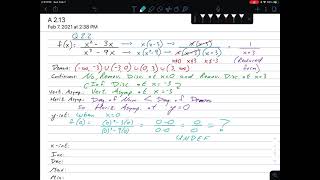 A 2.13
Feb 7, 2021 at 2:38 PM
Q 2.2
f(x) = x²-3x / x³-9x → x(x-3) / x(x²-9) → x(x-3) / x(x-3)(x+3) → 1 / x+3
x≠0 x≠3 x≠-3 (Reduced form)
Domain: (-∞,-3) ∪ (-3,0) ∪ (0,3) ∪ (3,∞)
Continuous: No, Remov. Disc. at x=0 and Remov. Disc at x=3
Vert. Asymp. at x=-3
Vert. Asymp: x=-3
Horiz. Asymp: Deg of Num < Deg of Denom
So Horiz Asymp. at y=0
y-int: when x=0
f(0) = (0)²-3(0) / (0)³-9(0) = 0-0 / 0-0 = 0/0 = ?
UNDEF
x-int:
Inc:
Dec:
Max:
Min: